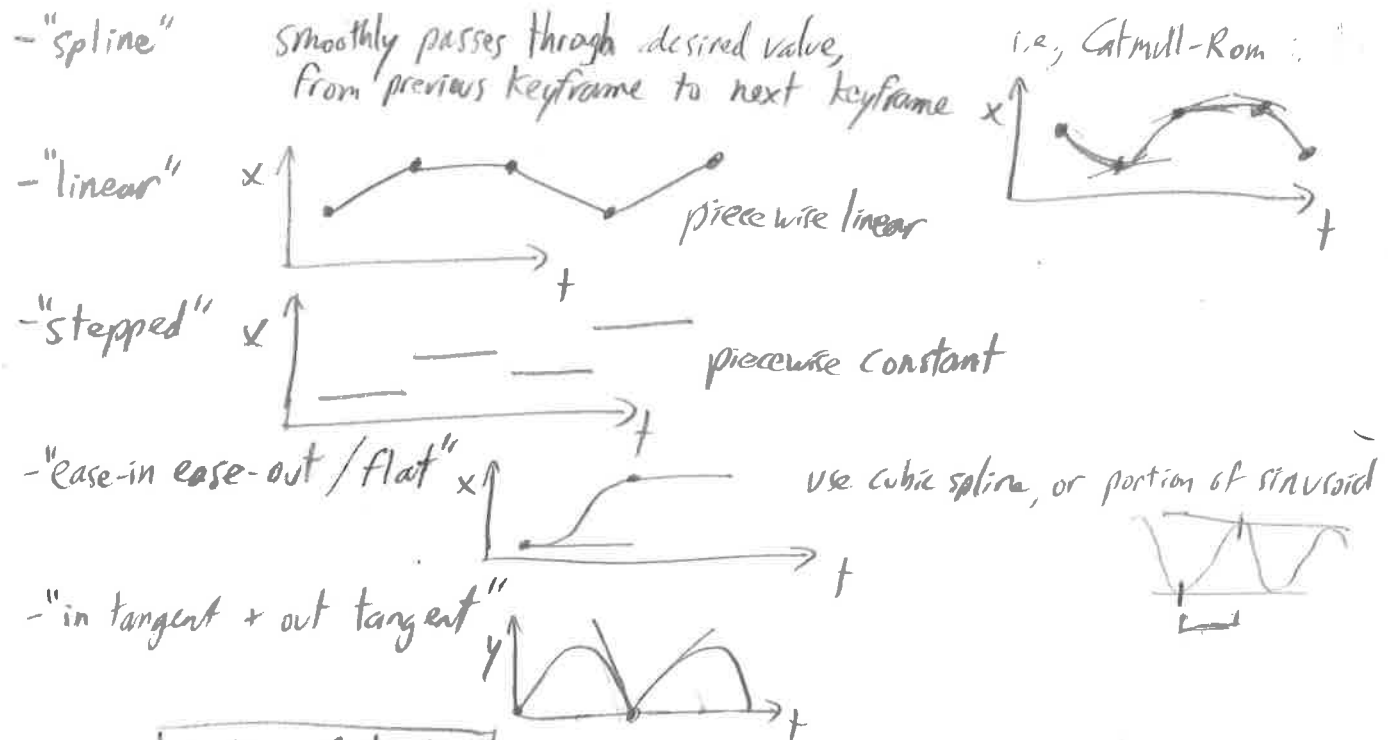 - "spline" smoothly passes through desired value, i.e., Catmull-Rom :
from previous keyframe to next keyframe
x
t
- "linear" x piecewise linear
t
- "stepped" x piecewise constant
t
- "ease-in ease-out / flat" x use cubic spline, or portion of sinusoid
t
- "in tangent + out tangent"
y
t